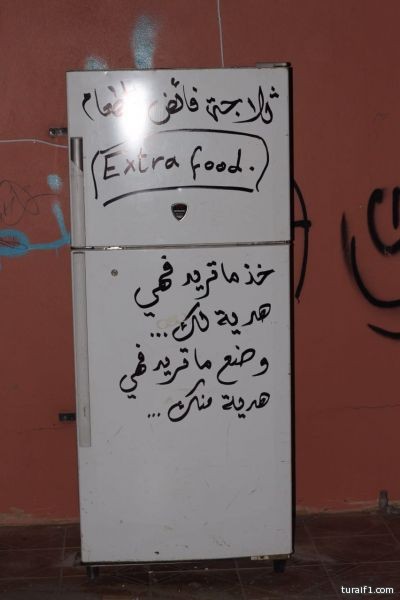 ثلاجة فائض الطعام
Extra food.
خذ ما تريد فهي
هدية لك...
وضع ما تريد فهي
هدية منك...
turaif1.com